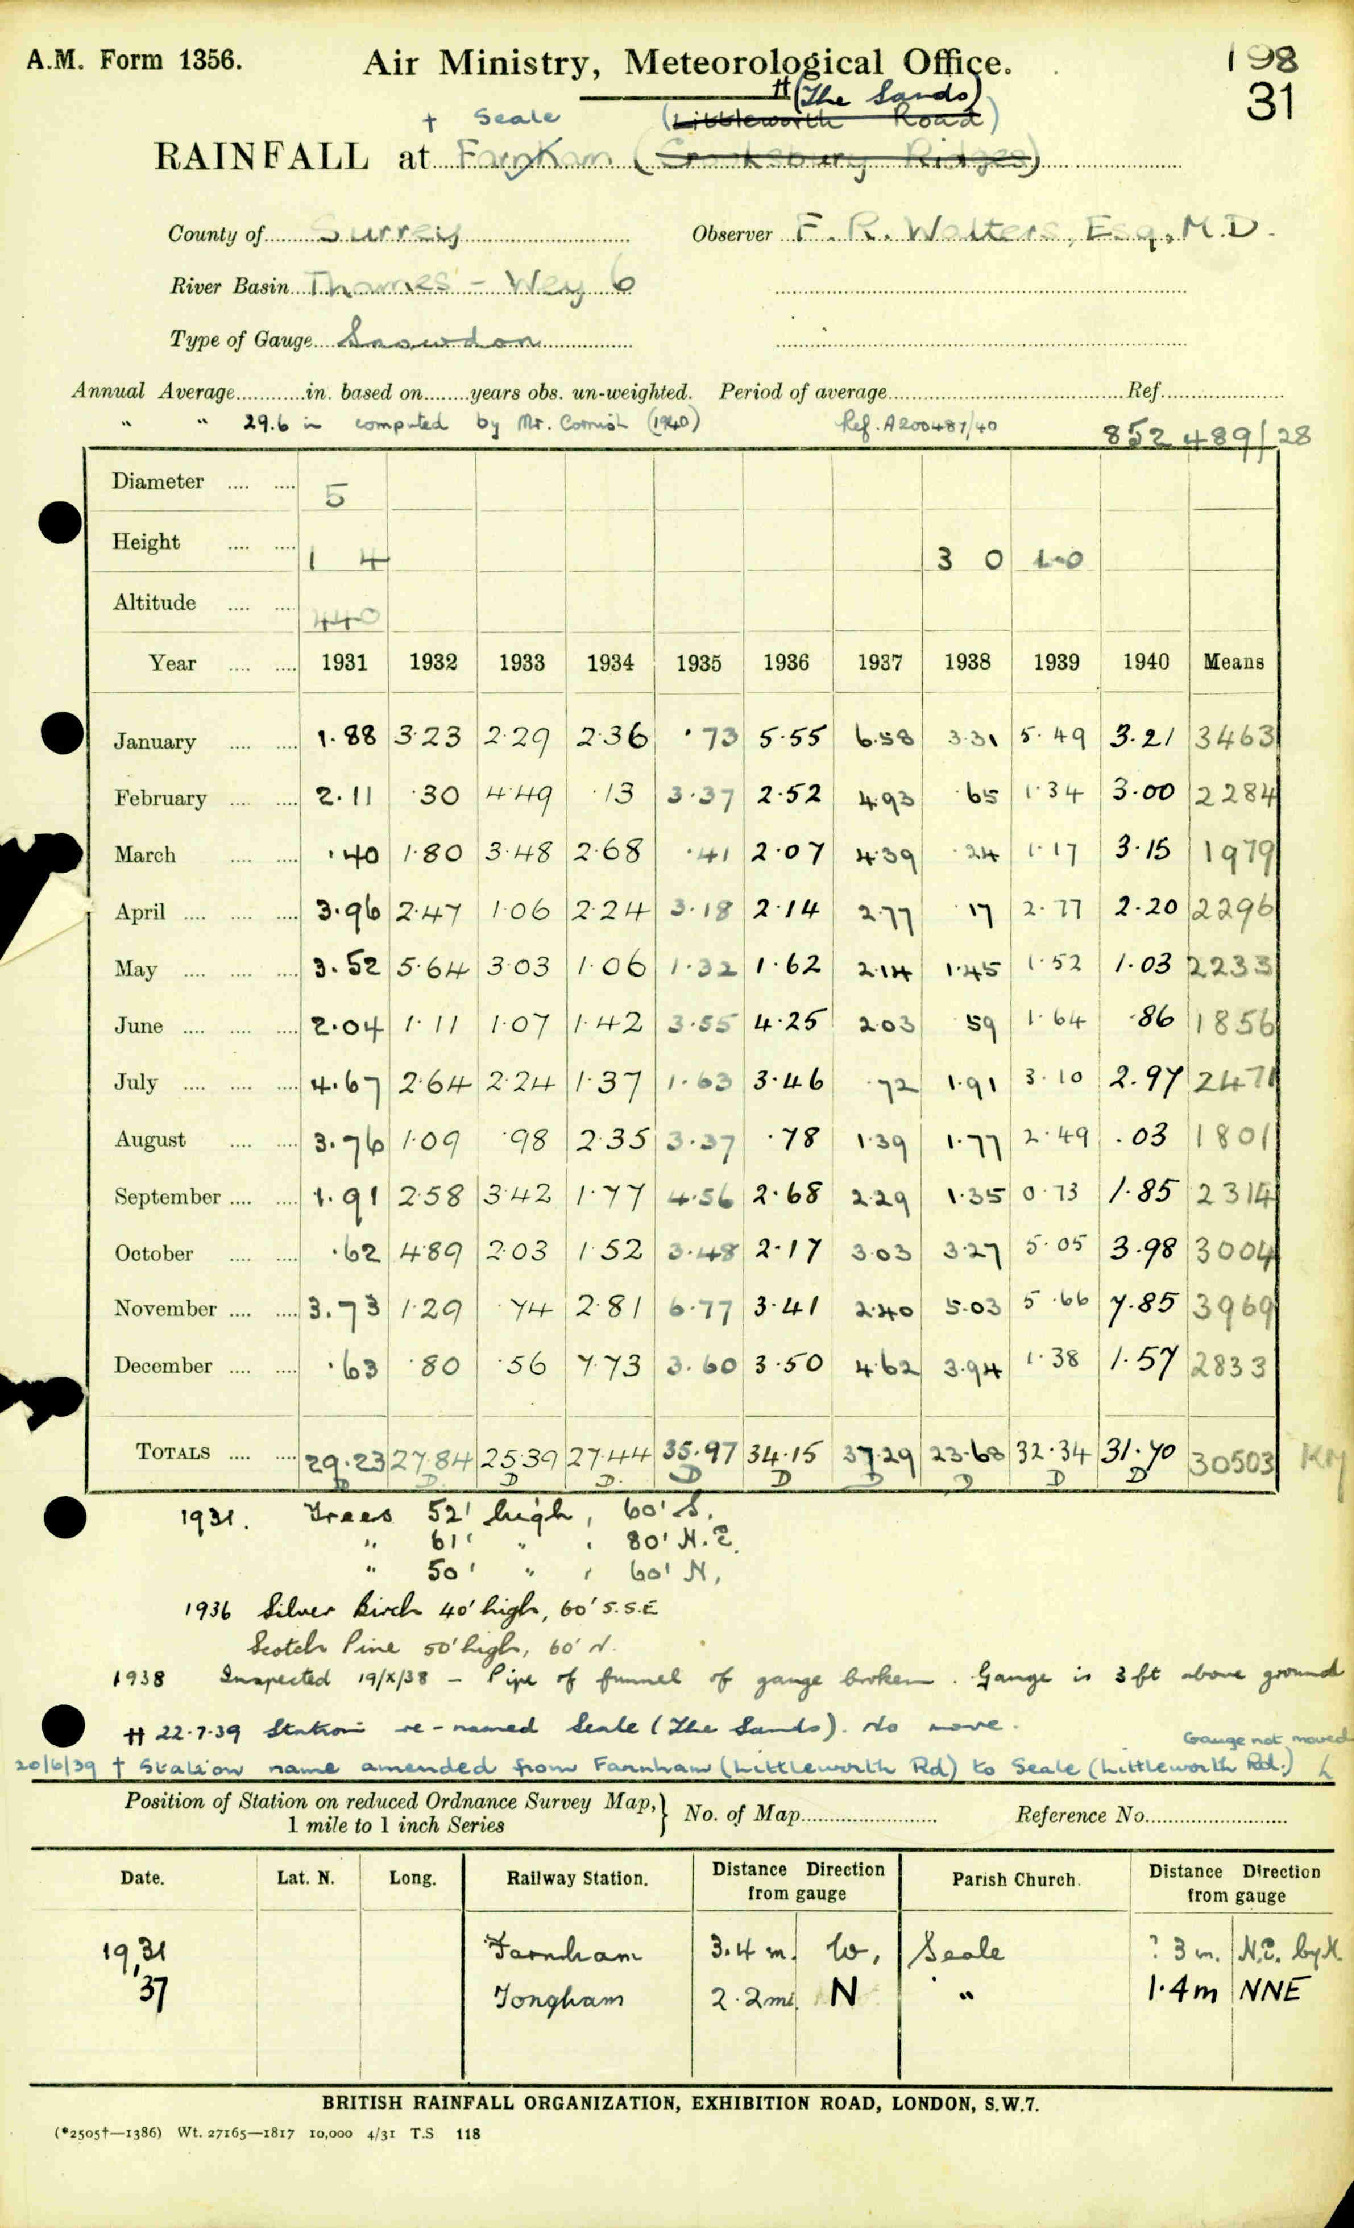 A.M. Form 1356.
Air Ministry, Meteorological Office.
198
31
# (The Sands)
† Seale (Littleworth Road)
RAINFALL at Farnham (Crooksbury Ridges)
County of Surrey Observer F. R. Walters, Esq., M.D.
River Basin Thames - Wey 6
Type of Gauge Snowdon
Annual Average in. based on years obs. un-weighted. Period of average Ref.
" " 29.6 in computed by Mr. Cornish (1940) Ref. A200487/40 852489/28
Diameter 5
Height 1 4 3 0 1.0
Altitude 440
Year 1931 1932 1933 1934 1935 1936 1937 1938 1939 1940 Means
January 1.88 3.23 2.29 2.36 .73 5.55 6.58 3.31 5.49 3.21 3463
February 2.11 .30 4.49 .13 3.37 2.52 4.93 .65 1.34 3.00 2284
March .40 1.80 3.48 2.68 .41 2.07 4.39 .24 1.17 3.15 1979
April 3.96 2.47 1.06 2.24 3.18 2.14 2.77 .17 2.77 2.20 2296
May 3.52 5.64 3.03 1.06 1.32 1.62 2.14 1.45 1.52 1.03 2233
June 2.04 1.11 1.07 1.42 3.55 4.25 2.03 .59 1.64 .86 1856
July 4.67 2.64 2.24 1.37 1.63 3.46 .72 1.91 3.10 2.97 2471
August 3.76 1.09 .98 2.35 3.37 .78 1.39 1.77 2.49 .03 1801
September 1.91 2.58 3.42 1.77 4.56 2.68 2.29 1.35 0.73 1.85 2314
October .62 4.89 2.03 1.52 3.48 2.17 3.03 3.27 5.05 3.98 3004
November 3.73 1.29 .74 2.81 6.77 3.41 2.40 5.03 5.66 7.85 3969
December .63 .80 .56 7.73 3.60 3.50 4.62 3.94 1.38 1.57 2833
TOTALS 29.23 27.84 25.39 27.44 35.97 34.15 37.29 23.68 32.34 31.70 30503 KM
D D D D D D D D D D
1931. Trees 52' high, 60' S.
" 61' " , 80' N.E.
" 50' " , 60' N.
1936 Silver Birch 40' high, 60' S.S.E
Scotch Pine 50' high, 60' N.
1938 Inspected 19/X/38 - Pipe of funnel of gauge broken. Gauge is 3 ft above ground
# 22.7.39 Station re-named Seale (The Sands). No move.
Gauge not moved
20/6/39 † Station name amended from Farnham (Littleworth Rd) to Seale (Littleworth Rd.)
Position of Station on reduced Ordnance Survey Map, 1 mile to 1 inch Series } No. of Map Reference No.
Date. Lat. N. Long. Railway Station. Distance Direction from gauge Parish Church. Distance Direction from gauge
1931 Farnham 3.4 m. W. Seale ? 3 m. N.E. by N.
37 Tongham 2.2 m. N " 1.4 m NNE
BRITISH RAINFALL ORGANIZATION, EXHIBITION ROAD, LONDON, S.W.7.
(*2505†—1386) Wt. 27165—1817 10,000 4/31 T.S 118